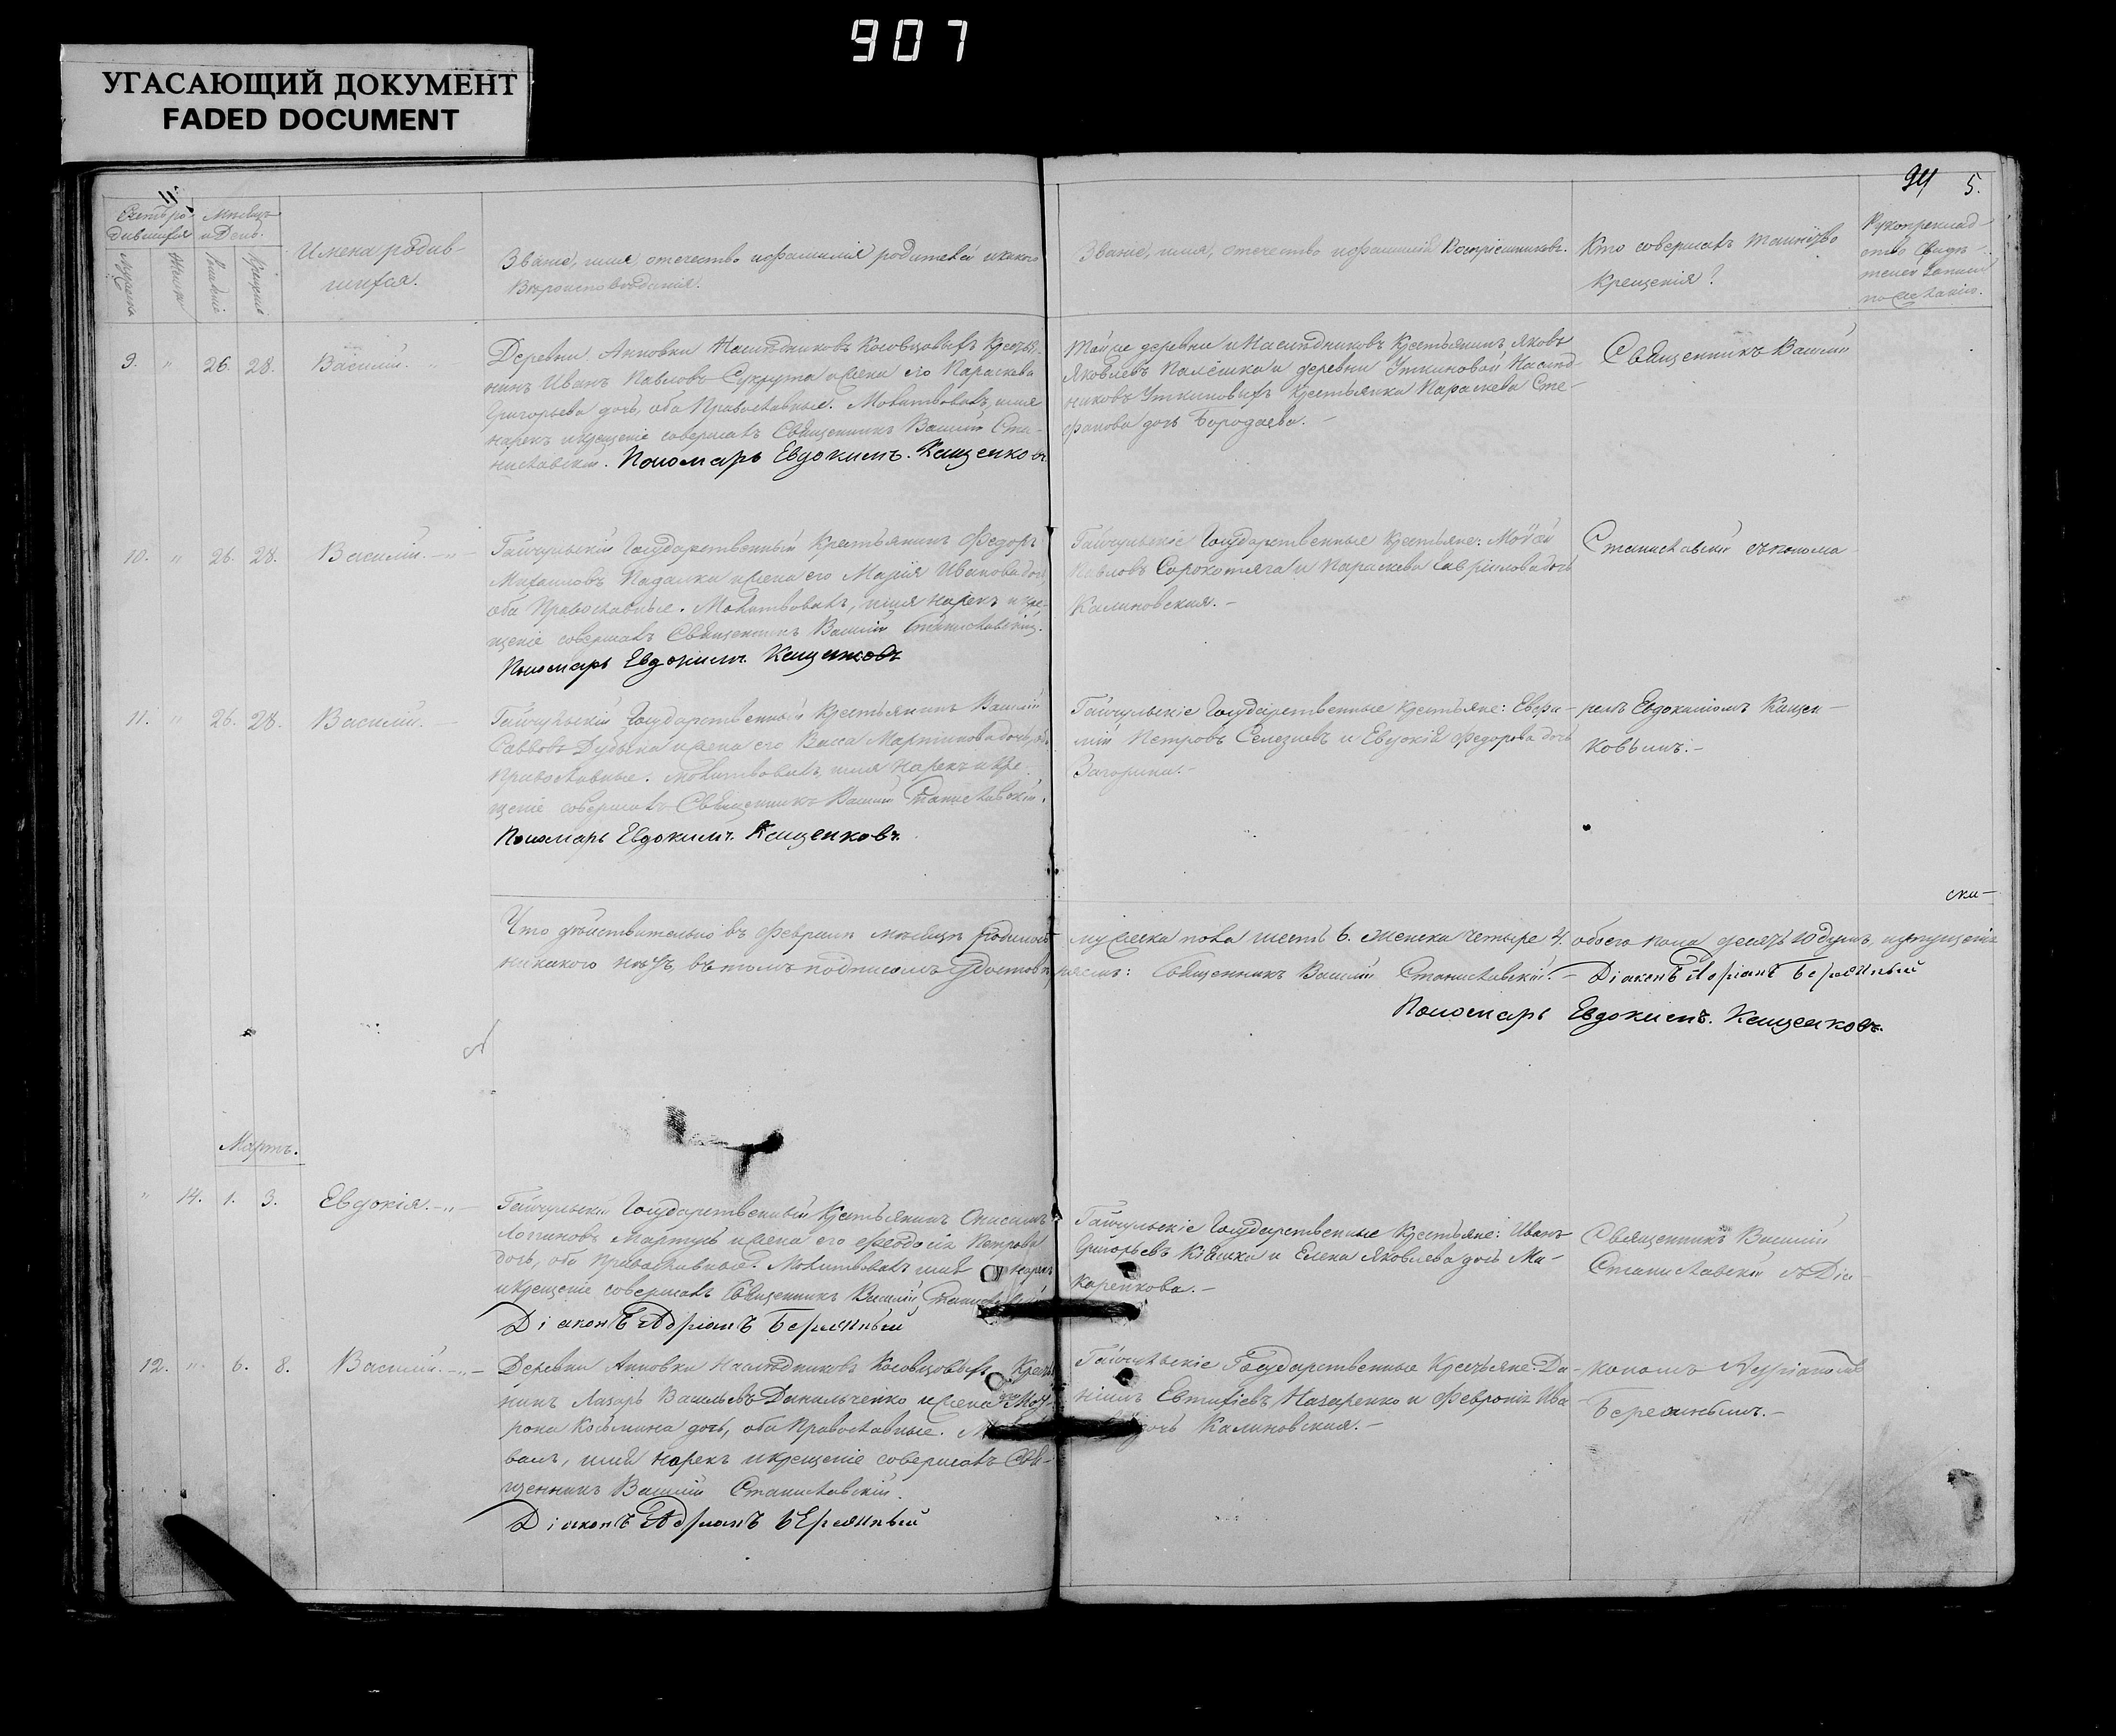 907
УГАСАЮЩИЙ ДОКУМЕНТ
FADED DOCUMENT
11
94 5.
Счетъ ро-
дившихся
Мѣсяцъ
и День.
Мужска
Женска
Рожденіе
Крещеніе
Имена родив-
шихся.
Званіе, имя отечество и фамилія родителей и какого
Вѣроисповѣданія.
Званіе, имя, отечество и фамилія Воспріемниковъ.
Кто совершалъ таинство
Крещенія?
Рукоприклад-
ство свидѣ-
телей записи
по желанію.
9. " 26. 28. Василій.
Деревни Анновки Наслѣдниковъ Косовцовыхъ Крестья-
нинъ Иванъ Павловъ Сукрута и жена его Параскева
Григорьева дочь, оба Православные. Молитвовалъ, имя
нарекъ и крещеніе совершалъ Священникъ Василій Ста-
ниславскій. Пономарь Евдокимъ Кащенковъ
Той же деревни и Наслѣдниковъ Крестьянинъ Яковъ
Яковлевъ Палёшка и деревни Уткиновой Наслѣд-
никовъ Уткиновыхъ Крестьянка Параскева Сте-
фанова дочь Бородаева.
Священникъ Василій
10. " 26. 28. Василій.
Гайчульскій Государственный Крестьянинъ Федоръ
Михаиловъ Падалка и жена его Марія Иванова дочь,
оба Православные. Молитвовалъ, имя нарекъ и кре-
щеніе совершалъ Священникъ Василій Станиславскій.
Пономарь Евдокимъ Кащенковъ
Гайчульскіе Государственные Крестьяне: Моѵсей
Павловъ Сорокотяга и Параскева Гавріилова дочь
Калиновская.
Станиславскій съ понома-
11. " 26. 28. Василій.
Гайчульскій Государственный Крестьянинъ Василій
Саввовъ Дубына и жена его Васса Мартинова дочь, оба
Православные. Молитвовалъ, имя нарекъ и кре-
щеніе совершалъ Священникъ Василій Станиславскій.
Пономарь Евдокимъ Кащенковъ.
Гайчульскіе Государственные Крестьяне:
Петровъ Селезневъ и Евдокія Федорова дочь
ремъ Евдокимомъ Кащен-
ковымъ.
ски-
Что дѣйствительно въ Февралѣ мѣсяцѣ родилось мужеска пола шесть 6. женска четыре 4. обоего пола десять 10 душъ, и упущенія
никакого нѣтъ, въ томъ подписомъ удостовѣряемъ: Священникъ Василій Станиславскій. Діаконъ Адріанъ Бережный
Пономарь Евдокимъ Кащенковъ.
Мартъ.
" 14. 1. 3. Евдокія.
Гайчульскій Государственный Крестьянинъ Онисимъ
Логиновъ Мартуль и жена его Феодосія Петрова
дочь, оба Православные. Молитвовалъ имя нарекъ
и крещеніе совершалъ Священникъ Василій Станиславскій
Діаконъ Адріанъ Бережный
Гайчульскіе Государственные Крестьяне: Иванъ
Григорьевъ Кіяшка и Елена Яковлева дочь Ма-
каренкова.
Священникъ Василій
Станиславскій съ Діа-
12. " 6. 8. Василій.
Деревни Анновки Наслѣдниковъ Косовцовыхъ Крестья-
нинъ Лазарь Васильевъ Данильченко и жена его Мот-
рона Косьмина дочь, оба Православные.
валъ, имя нарекъ и крещеніе совершалъ Свя-
щенникъ Василій Станиславскій.
Діаконъ Адріанъ Бережный
Гайчульскіе Государственные Крестьяне: Да-
ніилъ Евтифіевъ Назаренко и Февронія Ива-
дочь Калиновская.
кономъ Адріаномъ
Бережнымъ.